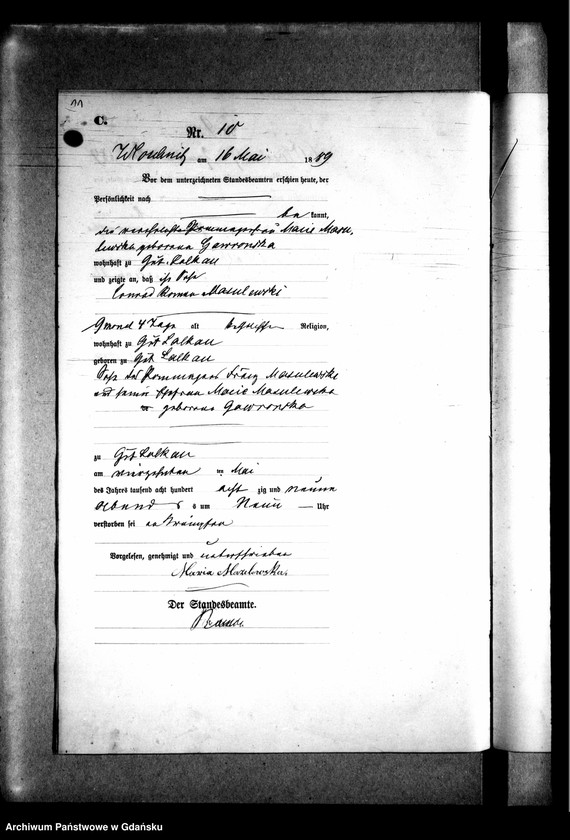 11
C.
Nr. 10
am 16 Mai 1889
Vor dem unterzeichneten Standesbeamten erschien heute, der
Persönlichkeit nach
be kannt,
die verehelichte Marie Masu,
lewska geborene Gawronska
wohnhaft zu Gut Lalkau
und zeigte an, daß ihr Sohn
Conrad Roman Masulewski
9 Monat 4 Tage alt katholischer Religion,
wohnhaft zu Gut Lalkau
geboren zu Gut Lalkau
Sohn des Franz Masulewski
und seiner Ehefrau Marie Masulewska
geborene Gawronska
zu Gut Lalkau
am vierzehnten ten Mai
des Jahres tausend acht hundert acht zig und neun
Abend s um Neun Uhr
verstorben sei an Krämpfen
Vorgelesen, genehmigt und unterschrieben
Maria Masulewska.
Der Standesbeamte.
Archiwum Państwowe w Gdańsku